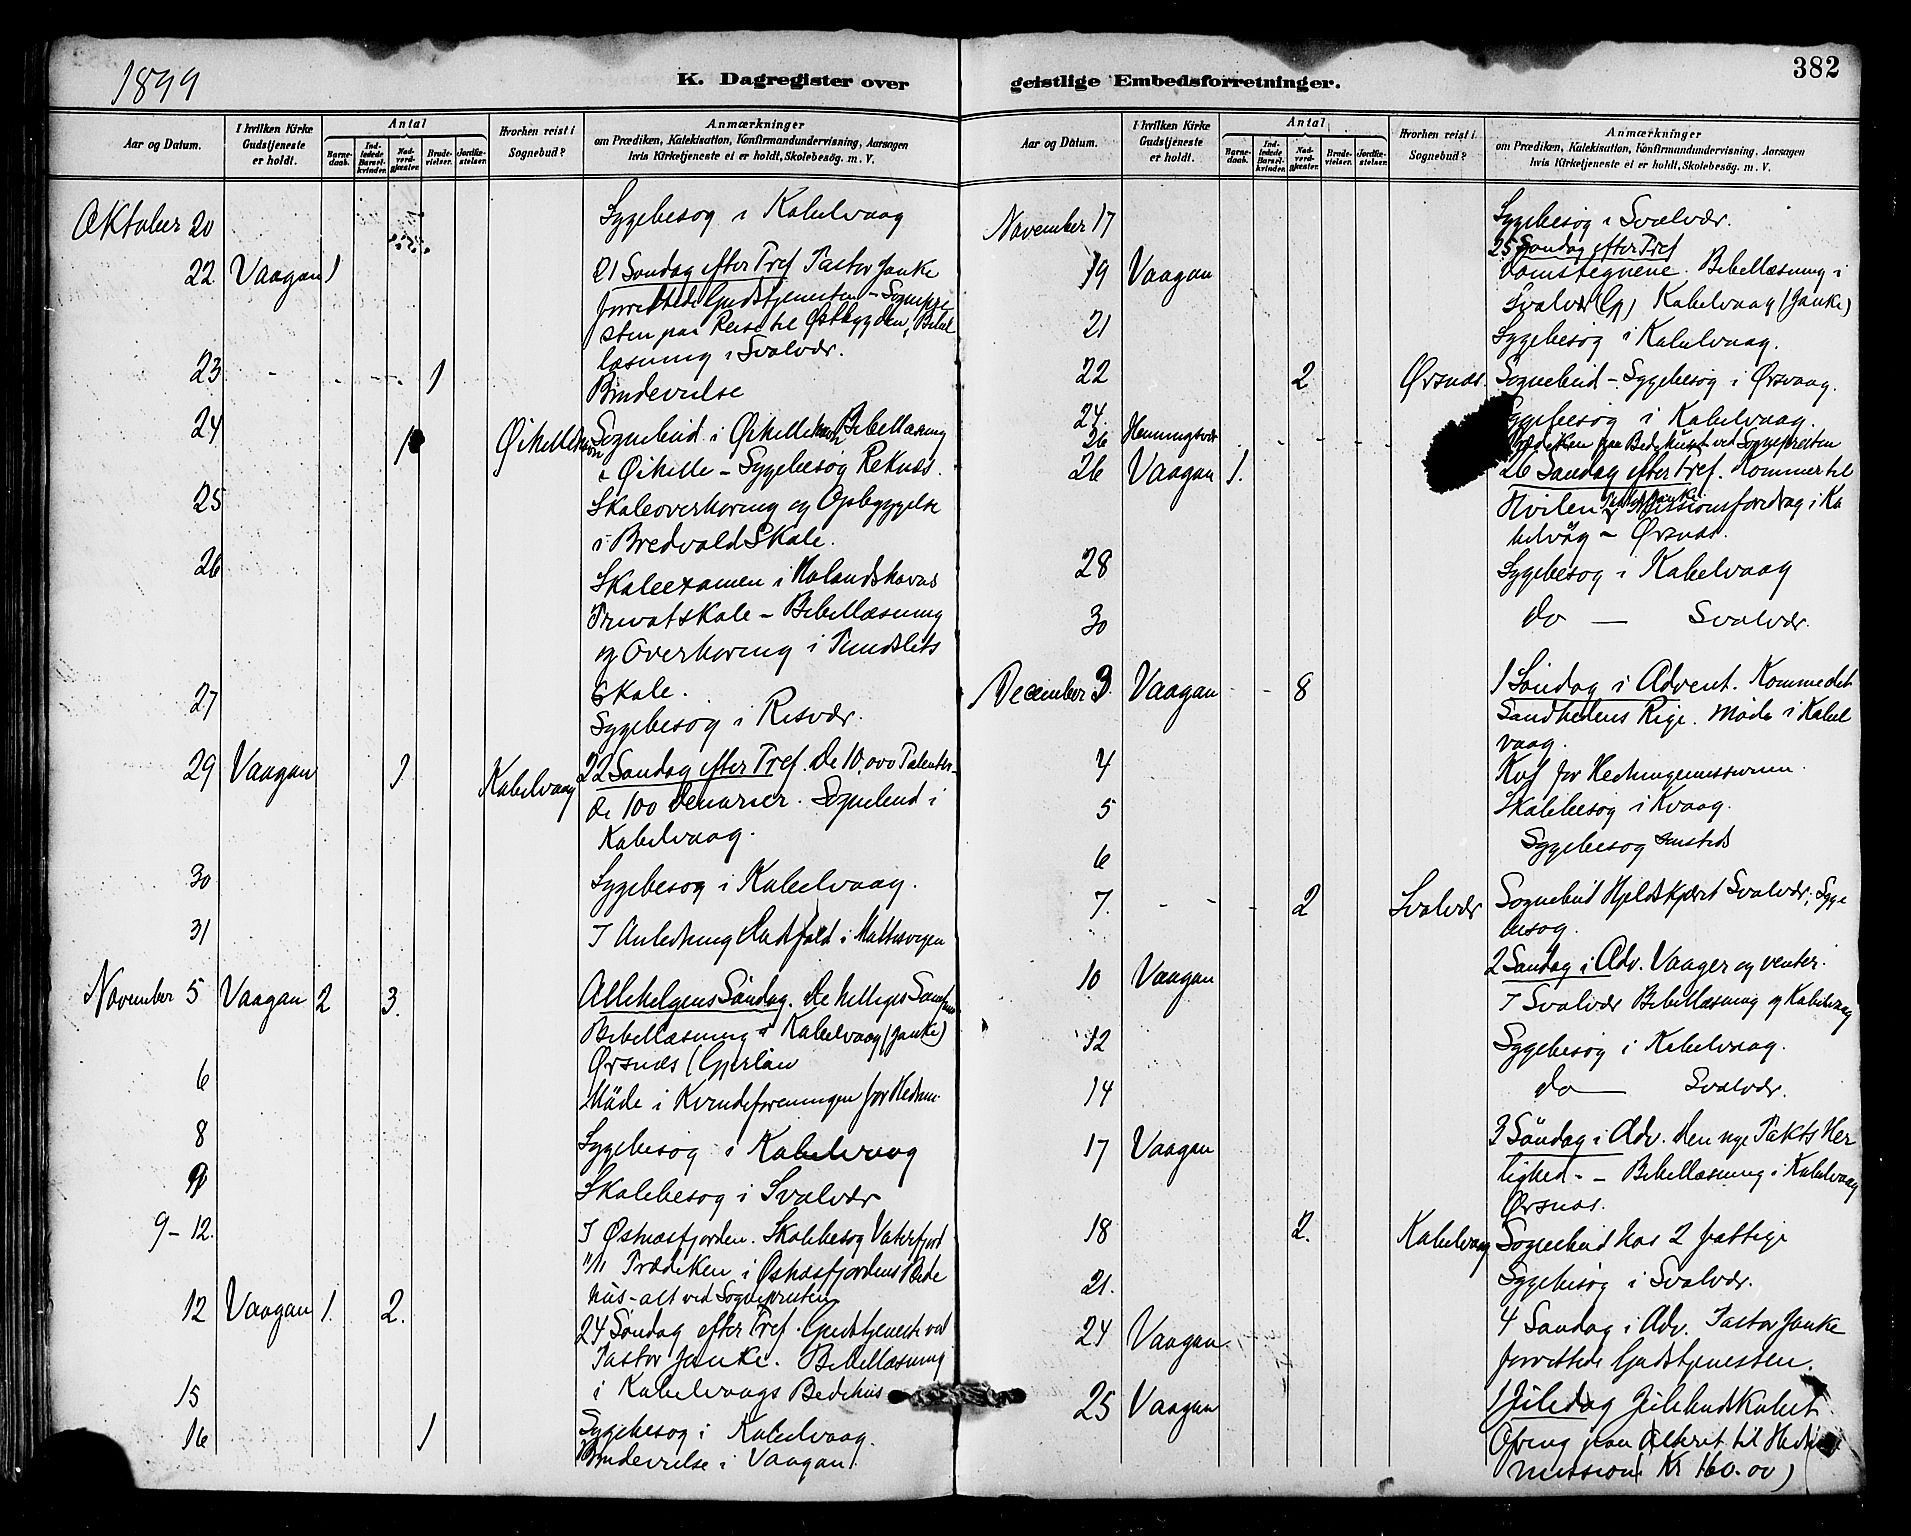 1899
K. Dagregister over
Aar og Datum.
I hvilken Kirke Gudstjeneste er holdt.
Antal
Barnedaab.
Indledede Barselkvinder.
Nadverdgjæster.
Brudevielser.
Jordfæstelser.
Hvorhen reist i Sognebud?
Anmærkninger
om Prædiken, Katekisation, Konfirmandundervisning, Aarsagen
hvis Kirketjeneste ei er holdt, Skolebesøg. m. V.
Oktober 20 Sygebesøg i Kabelvaag
22 Vaagan 1 21 Søndag efter Tref Pastor Janke
forrettede Gudstjenesten - Sognepre
sten paa Reise til Østbygden, Bibel
læsning i Svolvær.
23 1 Brudevielse
24 1 Sognebud i Bibellæsning
i - Sygebesøg Reknæs.
25 Skoleoverhøring og Opbyggelse
i Bredvold Skole.
26 Skoleexamen i
Privatskole - Bibellæsning
og Overhøring i
Skole.
27 Sygebesøg i Risvær.
29 Vaagan 1 Kabelvaag 22 Søndag efter Tref. De 10,000 Talenter -
de 100 Denarier. Sognebud i
Kabelvaag.
30 Sygebesøg i Kabelvaag.
31 I Anledning i
November 5 Vaagan 2 3. Allehelgens Søndag. De helliges
Bibellæsning i Kabelvaag (Janke)
Ørsnæs
6 Møde i Kvindeforeningen for
8 Sygebesøg i Kabelvaag
9 Skolebesøg i Svolvær
9-12. I Østnæsfjorden. Skolebesøg Vaterfjord
Prædiken i Østnæsfjordens Bede
hus - alt ved Sognepresten
12 Vaagan 1. 2. 24 Søndag efter Tref. Gudstjeneste ved
Pastor Janke. Bibellæsning
i Kabelvaags Bedehus
15 Sygebesøg i Kabelvaag.
16 1 Brudevielse i Vaagan.
382
geistlige Embedsforretninger.
Aar og Datum.
I hvilken Kirke Gudstjeneste er holdt.
Antal
Barnedaab.
Indledede Barselkvinder.
Nadverdgjæster.
Brudevielser.
Jordfæstelser.
Hvorhen reist i Sognebud?
Anmærkninger
om Prædiken, Katekisation, Konfirmandundervisning, Aarsagen
hvis Kirketjeneste ei er holdt, Skolebesøg. m. V.
November 17 Sygebesøg i Svolvær.
25 Søndag efter Tref
19 Vaagan Domstegnene. Bibellæsning i
Svolvær (Gj) Kabelvaag (Janke)
21 Sygebesøg i Kabelvaag.
22 2 Ørsnæs. Sognebud - Sygebesøg i Ørsvaag.
24 Sygebesøg i Kabelvaag.
26 Henningsvær Prædiken paa Bedehuset ved Sognepresten
26 Vaagan 1. 26 Søndag efter Tref. Kommer til
Hvilen Missionsforedrag i Ka
belvåg - Ørsnæs.
28 Sygebesøg i Kabelvaag
30 do — Svolvær.
December 3. Vaagan - - 8 1 Søndag i Advent. Kommedet
Sandhedens Rige. Møde i Kabel
vaag.
4 Kvf for Hedningemissionen.
5 Skolebesøg i Kvaag.
6 Sygebesøg
7. - - - 2 Svolvær Sognebud Svolvær; Syge
besøg.
10 Vaagan 2 Søndag i Adv. Vaager og venter.
I Svolvær Bibellæsning og Kabelvaag
12 Sygebesøg i Kabelvaag.
14 do — Svolvær.
17 Vaagan 3 Søndag i Adv. Den nye Pakts Her
lighed - - Bibellæsning i Kabelvaag
Ørsnæs.
18 2. Kabelvaag Sognebud hos 2 fattige
21. Sygebesøg i Svolvær.
24 Vaagan. 4 Søndag i Adv. Pastor Janke
forrettede Gudstjenesten.
25 Vaagan 1 Juledag Julebudskabet
Ofring paa Alteret til
mission Kr 160.00)